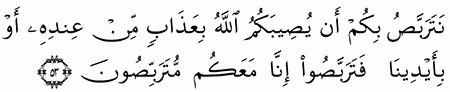 نَتَرَبَّصُ بِكُمْ أَن يُصِيبَكُمُ ٱللَّهُ بِعَذَابٍ مِّنْ عِندِهِۦٓ أَوْ
بِأَيْدِينَا فَتَرَبَّصُوٓا۟ إِنَّا مَعَكُم مُّتَرَبِّصُونَ ۝٥٢